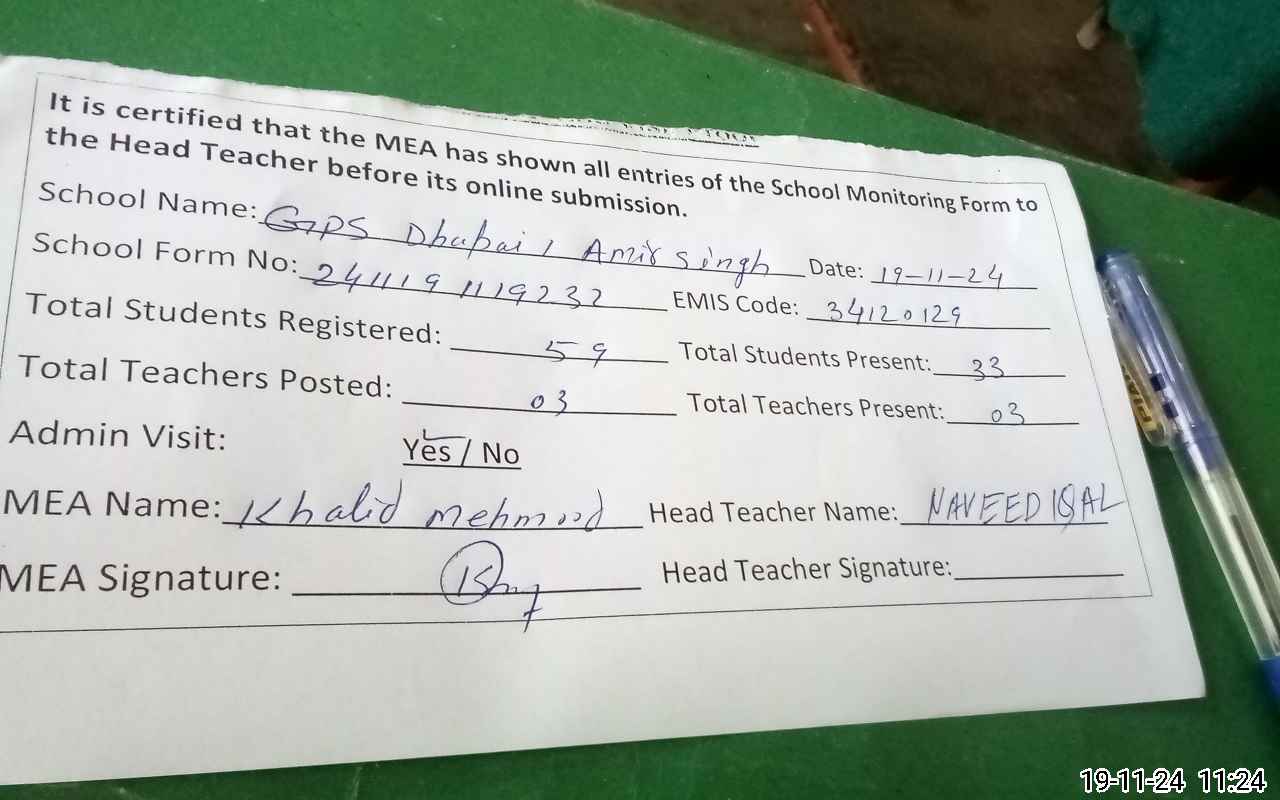 It is certified that the MEA has shown all entries of the School Monitoring Form to
the Head Teacher before its online submission.
School Name: GPS Dhupai / Amir singh Date: 19-11-24
School Form No: 241119 1119232 EMIS Code: 34120129
Total Students Registered: 59 Total Students Present: 33
Total Teachers Posted: 03 Total Teachers Present: 03
Admin Visit: Yes / No
MEA Name: Khalid Mehmood Head Teacher Name: NAVEED IQAL
MEA Signature: Head Teacher Signature:
19-11-24 11:24